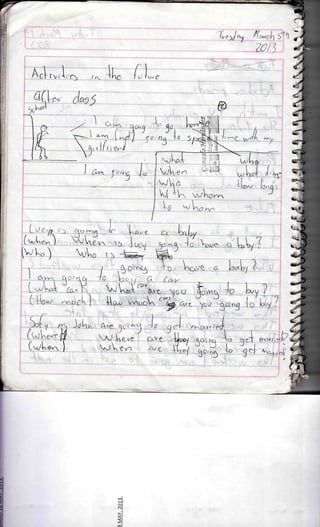 Tuesday March 5th
2013
Activities in the future
After class
School
I am going to go home
I am (not) going to spend time with my
girlfriend
I am going to
what
When
who
With whom
to whom
why
what time
How long
Lucy is going to have a baby
(when) When is Lucy going to have a baby?
(Who) Who is
going to have a baby?
I am going to buy a car
(what car) What car are you going to buy?
(How much) How much are you going to buy?
John are going to get married
(where) Where are they going to get married?
(when) When are they going to get married
MAY 2013